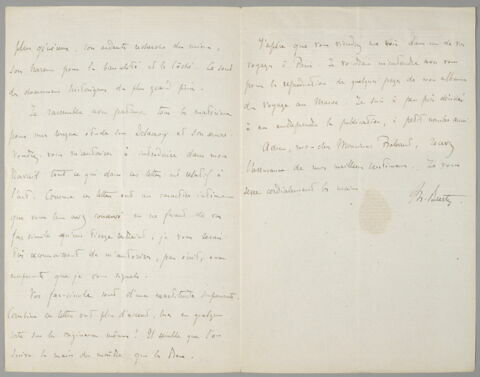 plus généreux, son ardente recherche du mieux,
son horreur pour la banalité et le lâché. Ce sont
des documents historiques du plus grand prix.
Je rassemble non patiemment tous les matériaux
pour une longue étude sur Delacroix et son œuvre.
Voudrez-vous m'autoriser à introduire dans mon
travail tout ce qui dans ces lettres est relatif à
l'art. Comme ces lettres ont un caractère intime
que vous leur avez conservé en ne faisant de vos
fac-simile qu'un tirage restreint, je vous serais
très reconnaissant de m'autoriser, par écrit, aux
emprunts que je vous signale.
Vos fac-simile sont d'une exactitude surprenante.
Combien ces lettres ont plus d'accent, lues en quelque
sorte sur les originaux mêmes ! Il semble que l'on
serre la main du maître, que le
J'espère que vous viendrez me voir dans un de vos
voyages à Paris. Je voudrais m'entendre avec vous
pour la reproduction de quelques pages de mon album
du voyage au Maroc. Je suis à peu près décidé
à en entreprendre la publication, à petit nombre
Adieu, mon cher Monsieur, recevez
l'assurance de mes meilleurs sentiments. Je vous
serre cordialement les mains.
Ph. Burty